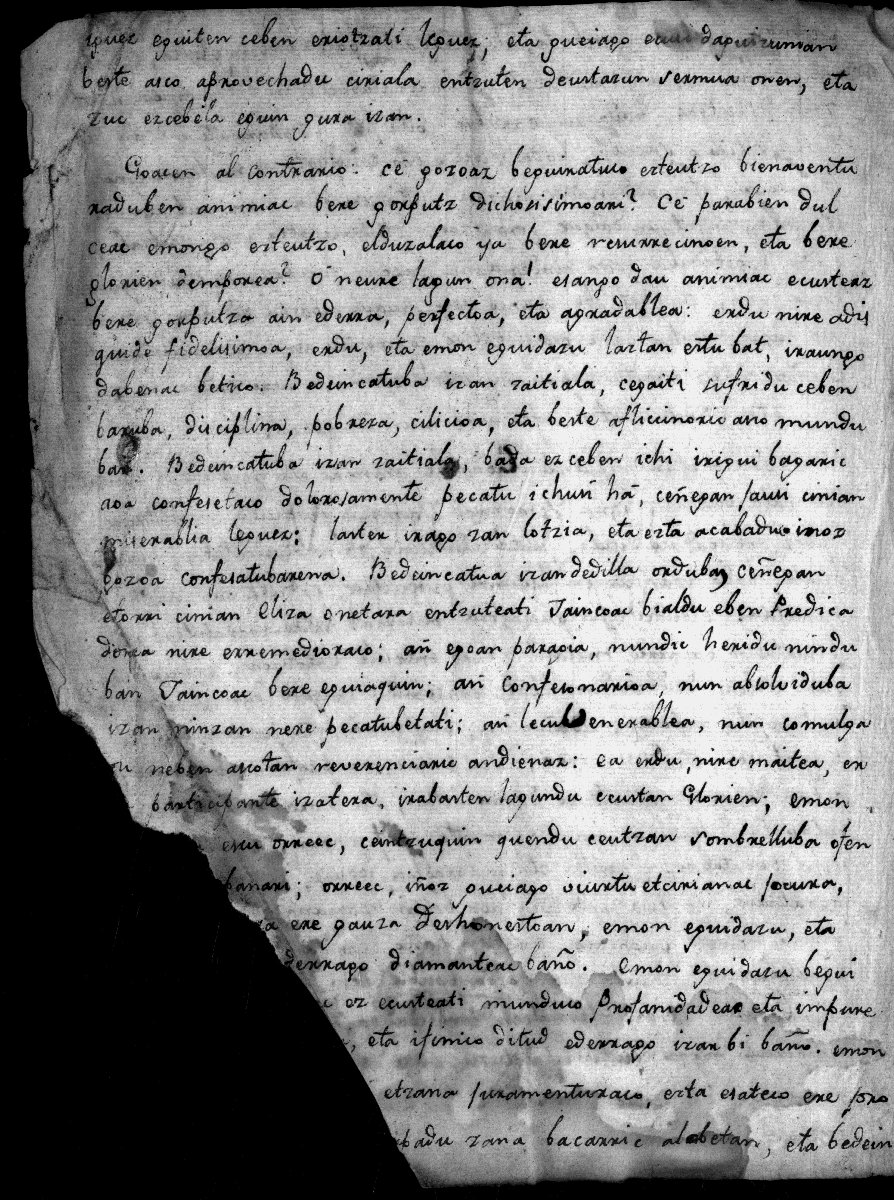 leguez eguiten ceben eriotzati leguez; eta gueiago daquizunian
beste asco aprovechadu ciriala entzuten deustazun sermua onen, eta
zuc ezcebela eguin gura izan.
Goacen al contrario. Cè gozoaz beguiratuco ezteutzo bienaventu
raduben animiac bere gorputz dichosisimoari? Cè parabien dul
ceac emongo ezteutzo, elduzalaco ya bere resurrecinoen, eta bere
glorien demporea? O neure lagun ona! esango dau animiac ecusteaz
bere gorputza ain ederra, perfectoa, eta agradablea: erdu nire adis
quide fidelisimoa, erdu, eta emon eguidazu laztan estu bat, iraungo
dabenac betico. Bedeincatuba izan zaitiala, cegaiti sufridu ceben
baruba, disciplina, pobreza, cilicioa, eta beste aflicinoric asco mundu
ban. Bedeincatuba izan zaitiala, bada ezceben ichi irigui bagaric
aoa confesetaco dolorosamente pecatu ichusi hà, ceñegan jausi cinian
miserablia leguez: laster irago zan lotzia, eta ezta acabaduco inoz
gozoa confesatubarena. Bedeincatua izan dedilla orduba, ceñegan
etorri cinian Eliza onetara entzuteati Jaincoac bialdu eben Predica
dorea nire erremedioraco; añ egoan paraoia, nundic heridu nindu
ban Jaincoac bere eguiaquin; añ confesonarioa, nun absolviduba
izan ninzan nere pecatubetati; añ lecu venerablea, nun comulga
du neben ascotan reverenciaric andienaz: ea erdu, nire maitea, er
participante izatera, irabasten lagundu ecustan Glorien; emon
escu orreec, ceintzuquin quendu ceutzan sombrelluba ofen
orreec, iñoz gueiago icurtu etcirianac
ere gauza deshonestoan, emon eguidazu, eta
ederrago diamanteac baño. Emon eguidazu begui
ez ecusteati munduco Profanidadeac eta impure
eta isinico ditud ederrago izar bi baño. emon
etzana juramenturaco, ezta esateco ere pro
badu zana bacarric alabetan, eta bedein